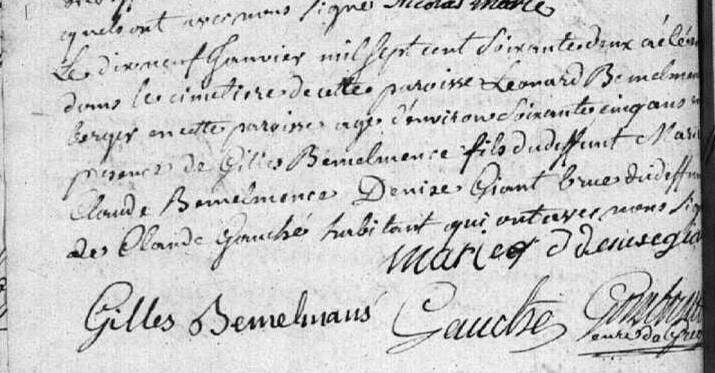 quels ont avec nous signé Nicolas Marie
Le dix neuf Janvier mil sept cent soixante deux a été
dans le cimetiere de cette paroisse Léonard Bemelmen
berger en cette paroisse agé d'environ soixante cinq ans
presence de Gilles Bemelmence fils du deffunt Mari
Claude Bemelmence Denise Giant brue du deffun
de Claude Gauché habitant qui ont avec nous sig
marie denise gia
Gilles Bemelmans Gauché
curé